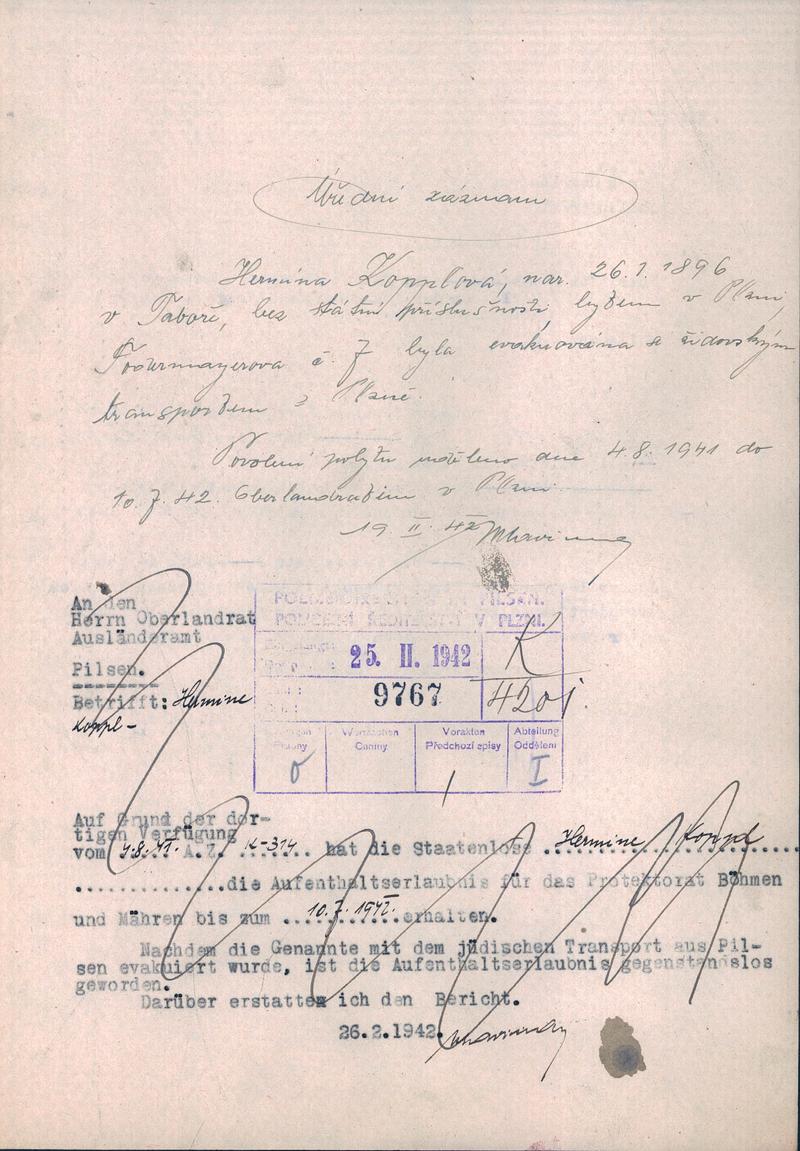 Úřední záznam
Hermína Kopplová, nar. 26.7.1896
v Táboře, bez státní příslušnosti, bytem v Plzni,
č. 7 byla evakuována se židovským
transportem z Plzně.
Povolení pobytu uděleno dne 4.8.1941 do
10.7.42. Oberlandratem v Plzni.
19. II. 42
An den
Herrn Oberlandrat
Ausländeramt
Pilsen.
Betrifft: Hermine
Koppl -
POLIZEIDIREKTION IN PILSEN.
POLICEJNÍ ŘEDITELSTVÍ V PLZNI.
25. II. 1942
K
9767
4201.
Beilagen Wertzeichen Vorakten Abteilung
Přílohy Ceniny Předchozí spisy Oddělení
0 I
Auf Grund der dor-
tigen Verfügung
vom 4.8.41. A.Z. K-314 hat die Staatenlose Hermine Koppl
..............die Aufenthaltserlaubnis für das Protektorat Böhmen
und Mähren bis zum 10.7.1942. erhalten.
Nachdem die Genannte mit dem jüdischen Transport aus Pil-
sen evakuiert wurde, ist die Aufenthaltserlaubnis gegenstandslos
geworden.
Darüber erstatten ich den Bericht.
26.2.1942.